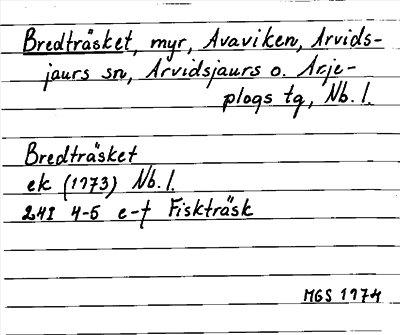 Bredträsket, myr, Avaviken, Arvids-
jaurs sn, Arvidsjaurs o. Arje-
plogs tg, Nb. l.
Bredträsket
ek (1973) Nb. l.
24I 4-5 e-f Fiskträsk
MGS 1974